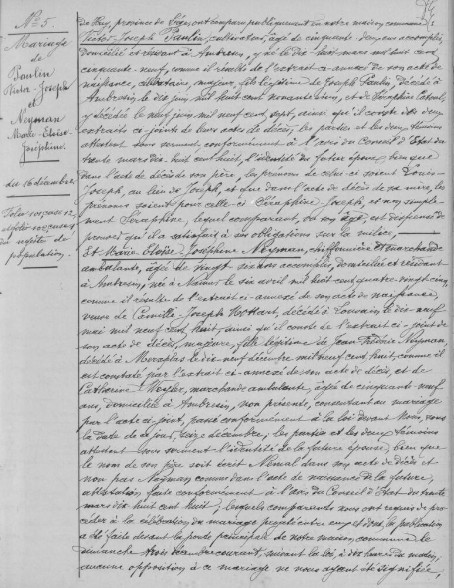 N° 5.
Mariage
de
Paulin
Victor-Joseph
et
Neyman
Marie-Eloïse-
Joséphine.
du 16 décembre
population.
de Huy, province de Liège, ont comparu publiquement en notre maison commune:
Victor-Joseph Paulin, cultivateur, âgé de cinquante deux ans accomplis,
domicilié et résidant à Ambresin, y né le dix huit mars mil huit cent
cinquante-neuf, comme il résulte de l'extrait ci-annexé de son acte de
naissance, célibataire, majeur, fils légitime de Joseph Paulin, décédé à
Ambresin le dix juin mil huit cent nonante cinq, et de Séraphine
y décédée le neuf juin mil neuf cent sept, ainsi qu'il conste des deux
extraits ci-joints de leurs actes de décès; les parties et les deux témoins
attestent sous serment, conformément à l'avis du Conseil d'Etat du
trente mars dix huit cent huit, l'identité du futur époux, bien que
dans l'acte de décès de son père, les prénoms de celui-ci soient Louis-
Joseph, au lieu de Joseph, et que dans l'acte de décès de sa mère, les
prénoms soient pour celle-ci Séraphine Joseph, et non simple-
ment Séraphine, lequel comparant, vu son âge, est dispensé de
prouver qu'il a satisfait à ses obligations sur la milice,
Et Marie Eloïse Joséphine Neyman, chiffonnière et marchande
ambulante, âgée de vingt six ans accomplis, domiciliée et résidant
à Ambresin, née à Namur le six avril mil huit cent quatre-vingt cinq
comme il résulte de l'extrait ci-annexé de son acte de naissance,
veuve de Camille Joseph Hottart, décédé à Louvain le dix-neuf
mai mil neuf cent huit, ainsi qu'il conste de l'extrait ci-joint de
son acte de décès, majeure, fille légitime de Jean Frédéric Neyman,
décédé à Merxplas le dix-neuf décembre mil neuf cent huit, comme il
est constaté par l'extrait ci-annexé de son acte de décès, et de
Catherine marchande ambulante, âgée de cinquante neuf
ans, domiciliée à Ambresin, non présente, consentant au mariage
par l'acte ci-joint, passé conformément à la loi devant Nous, sous
la date de ce jour, seize décembre; les parties et les deux témoins
attestent sous serment l'identité de la future épouse, bien que
le nom de son père soit écrit dans son acte de décès et
non pas Neyman comme dans l'acte de naissance de la future,
attestation faite conformément à l'avis du Conseil d'Etat du trente
mars dix huit cent huit; lesquels comparants nous ont requis de pro-
céder à la célébration du mariage projeté entre eux et dont la publication
a été faite devant la porte principale de notre maison commune le
dimanche trois décembre courant, suivant la loi, à dix heures du matin,
aucune opposition à ce mariage ne nous ayant été signifiée,